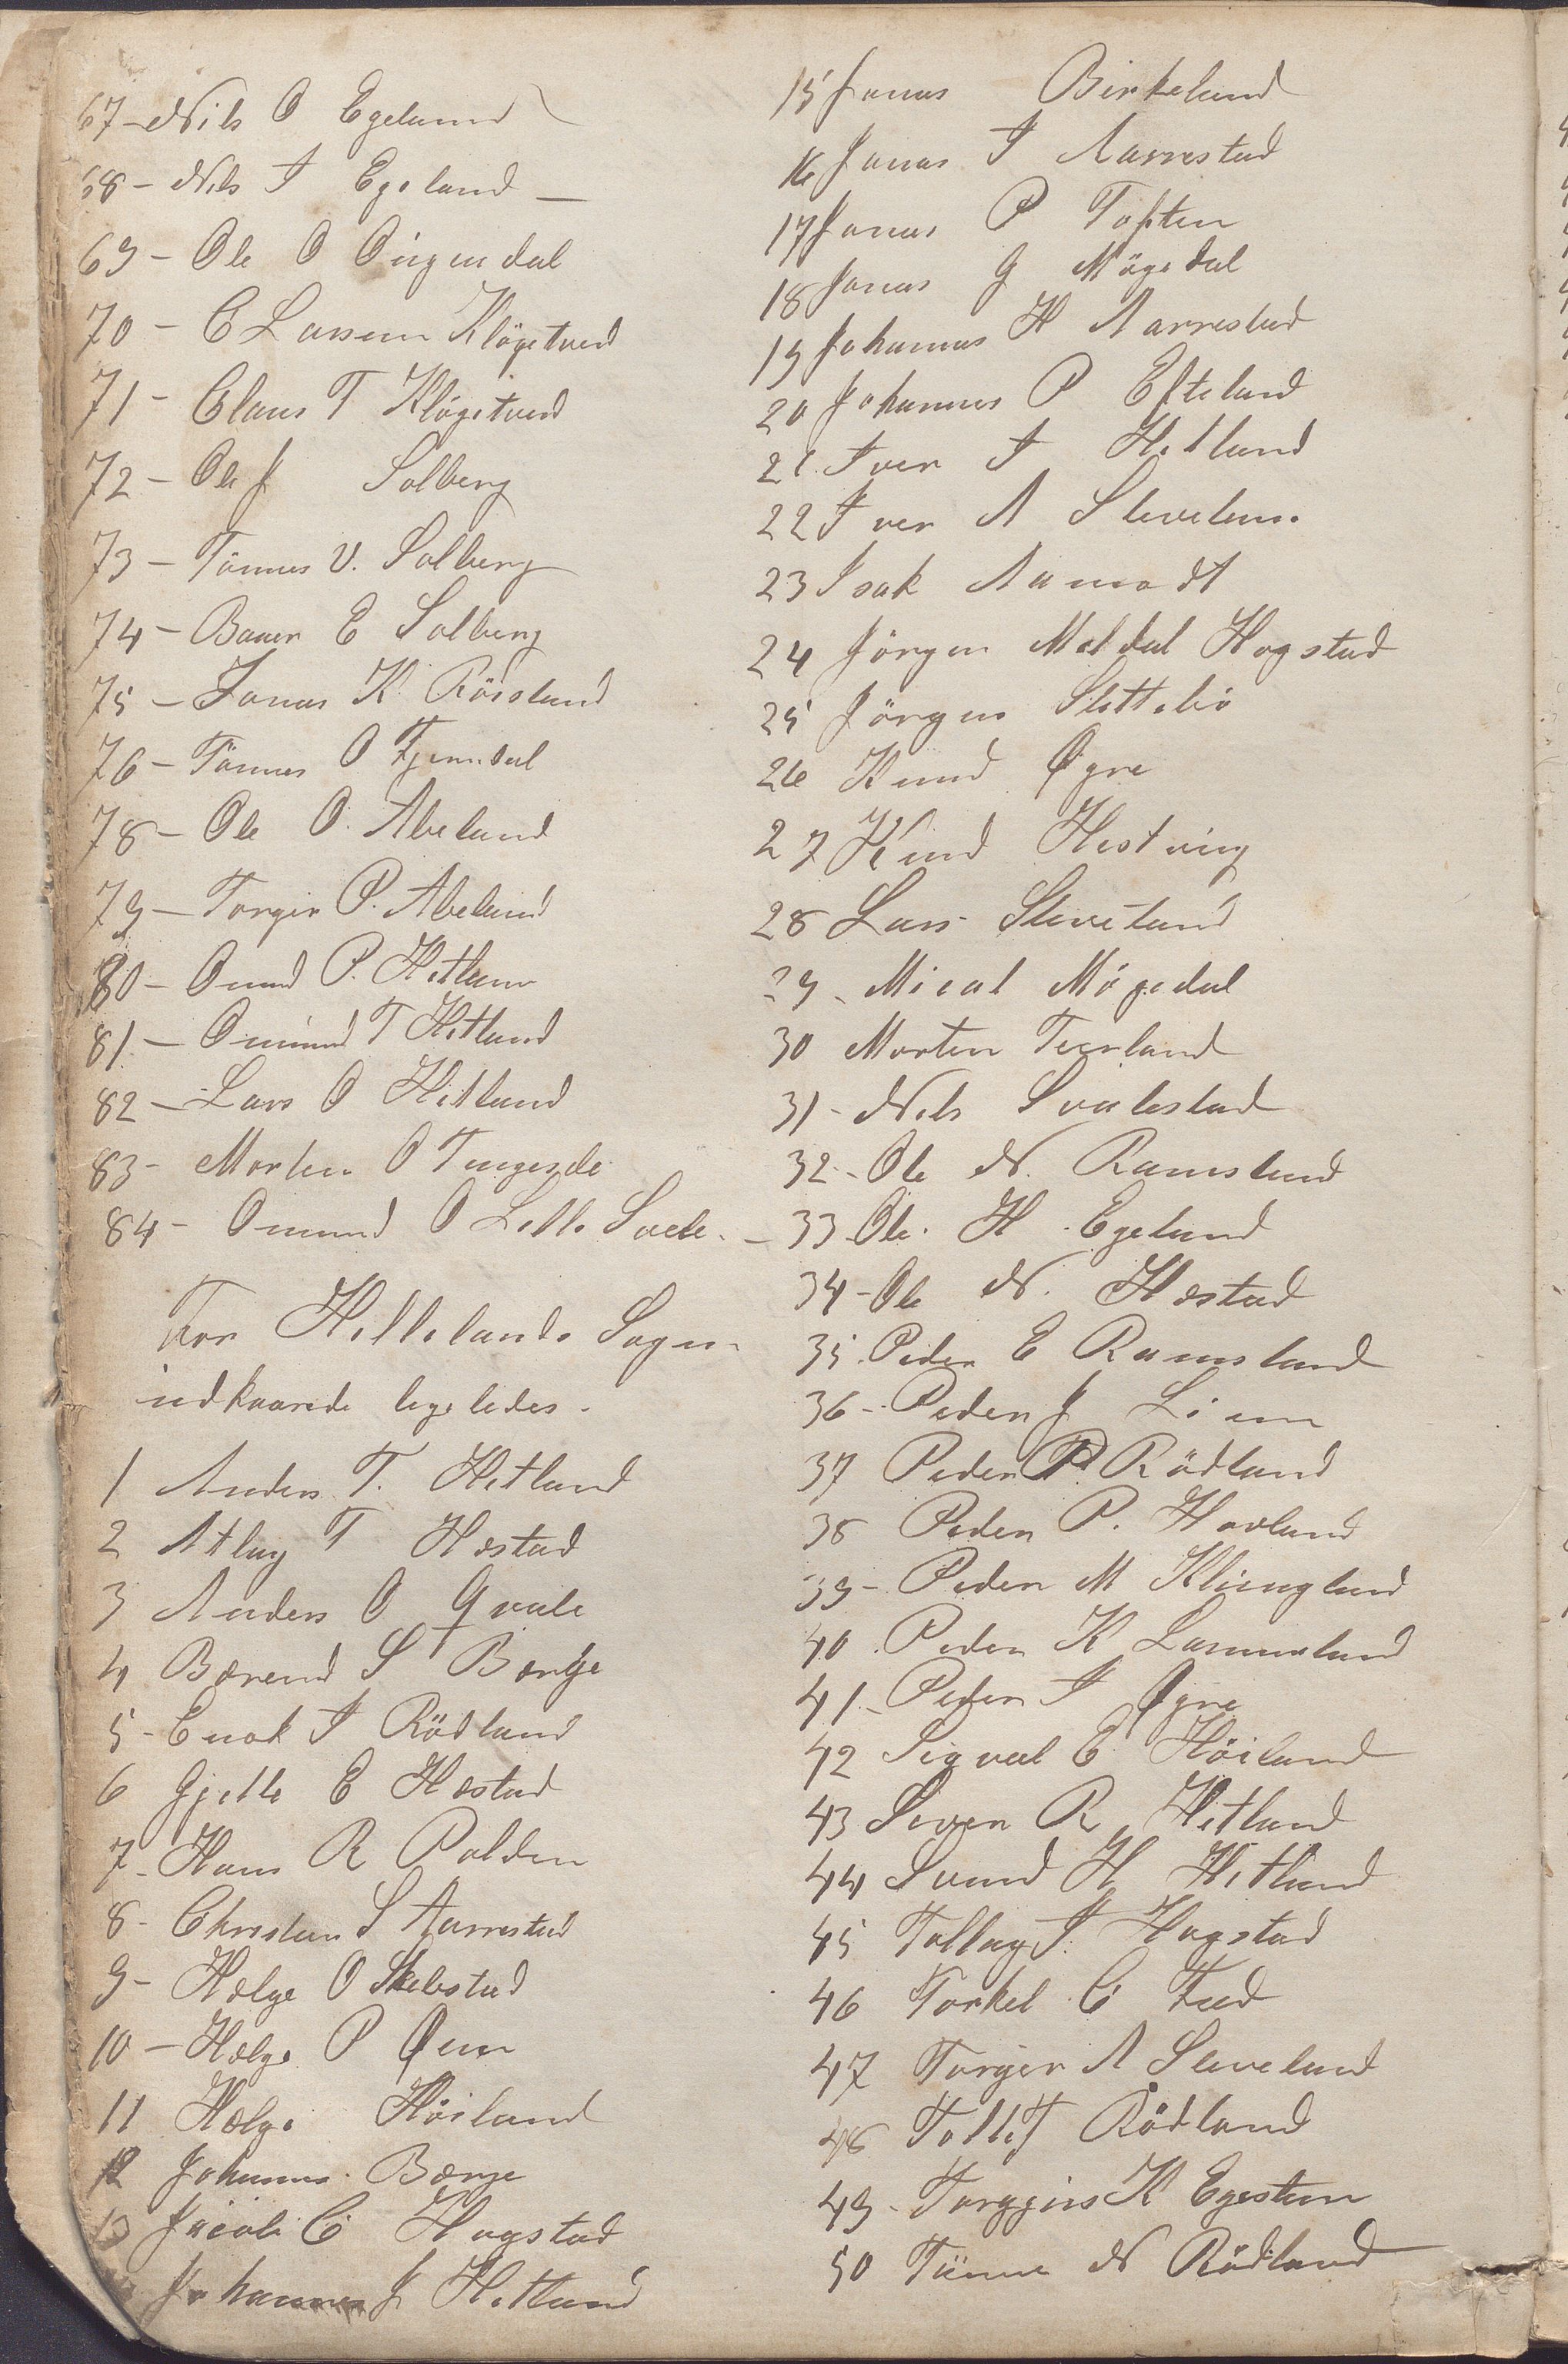 67 - Nils O Egeland
68 - Nils I Egeland -
69 - Ole O Oigendal
70 - C Lassen Klögetved
71 - Claus T Klögetved
72 - Ole J Solberg
73 - Tönnes V. Solberg
74 - Bauer E Solberg
75 - Jonas K. Röisland
76 - Tönnes O
78 - Ole O. Abeland
79 - Torger P. Abeland
80 - Omund P. Hetland
81 - Omund T Hetland
82 - Lars O Hetland
83 - Morten O Tengesda
84 - Omund O Lille Svele. -
For Hellelands Sogn
udkaarede ligeledes.
1 Anders T. Hetland
2 Atlag T Hæstad
3 Anders O Qvale
4 Bærend S Børge
5 - Enok I Rödland
6 Gjelle E Hæstad
7 - Hans R Polden
8 - Christian S Aarrestad
9 - Helge O Skebstad
10 - Helge P Øen
11 Helge Höiland
12 Johannes Børge
13 Jacob C Hogstad
Johannes J Hetland
15 Jonas Birkeland
16 Jonas I Aarrestad
17 Jonas P Toften
18 Jonas G Mögedal
19 Johannes H Aarrestad
20 Johannes P Efteland
21. Iver I Hetland
22 Iver A Sleveland
23 Isak Aamodt
24 Jörgen Meldal Hogstad
25 Jörgen Slettebö
26 Knud Øgre
27 Knud Hestvig
28 Lars Sleveland
29 - Mical Mögedal
30 Morten Terland
31 - Nils Svalestad
32 - Ole N. Ramsland
33 Ole H. Egeland
34 - Ole N. Hæstad
35. Peder E Ramsland
36 - Peder J Lien
37 Peder P. Rödland
38 Peder P. Hovland
39 - Peder M Klungland
40. Peder K Lammeland
41 - Peder I Øgre
42 Sigval E Höiland
43 Siven R Hetland
44 Svend H Hetland
45 Tollag I. Hogstad
46 Torkel C Fed
47 Torger A Sleveland
48 Tollef Rödland
49 - Torggius K Egesten
50 Tönne N Rödland